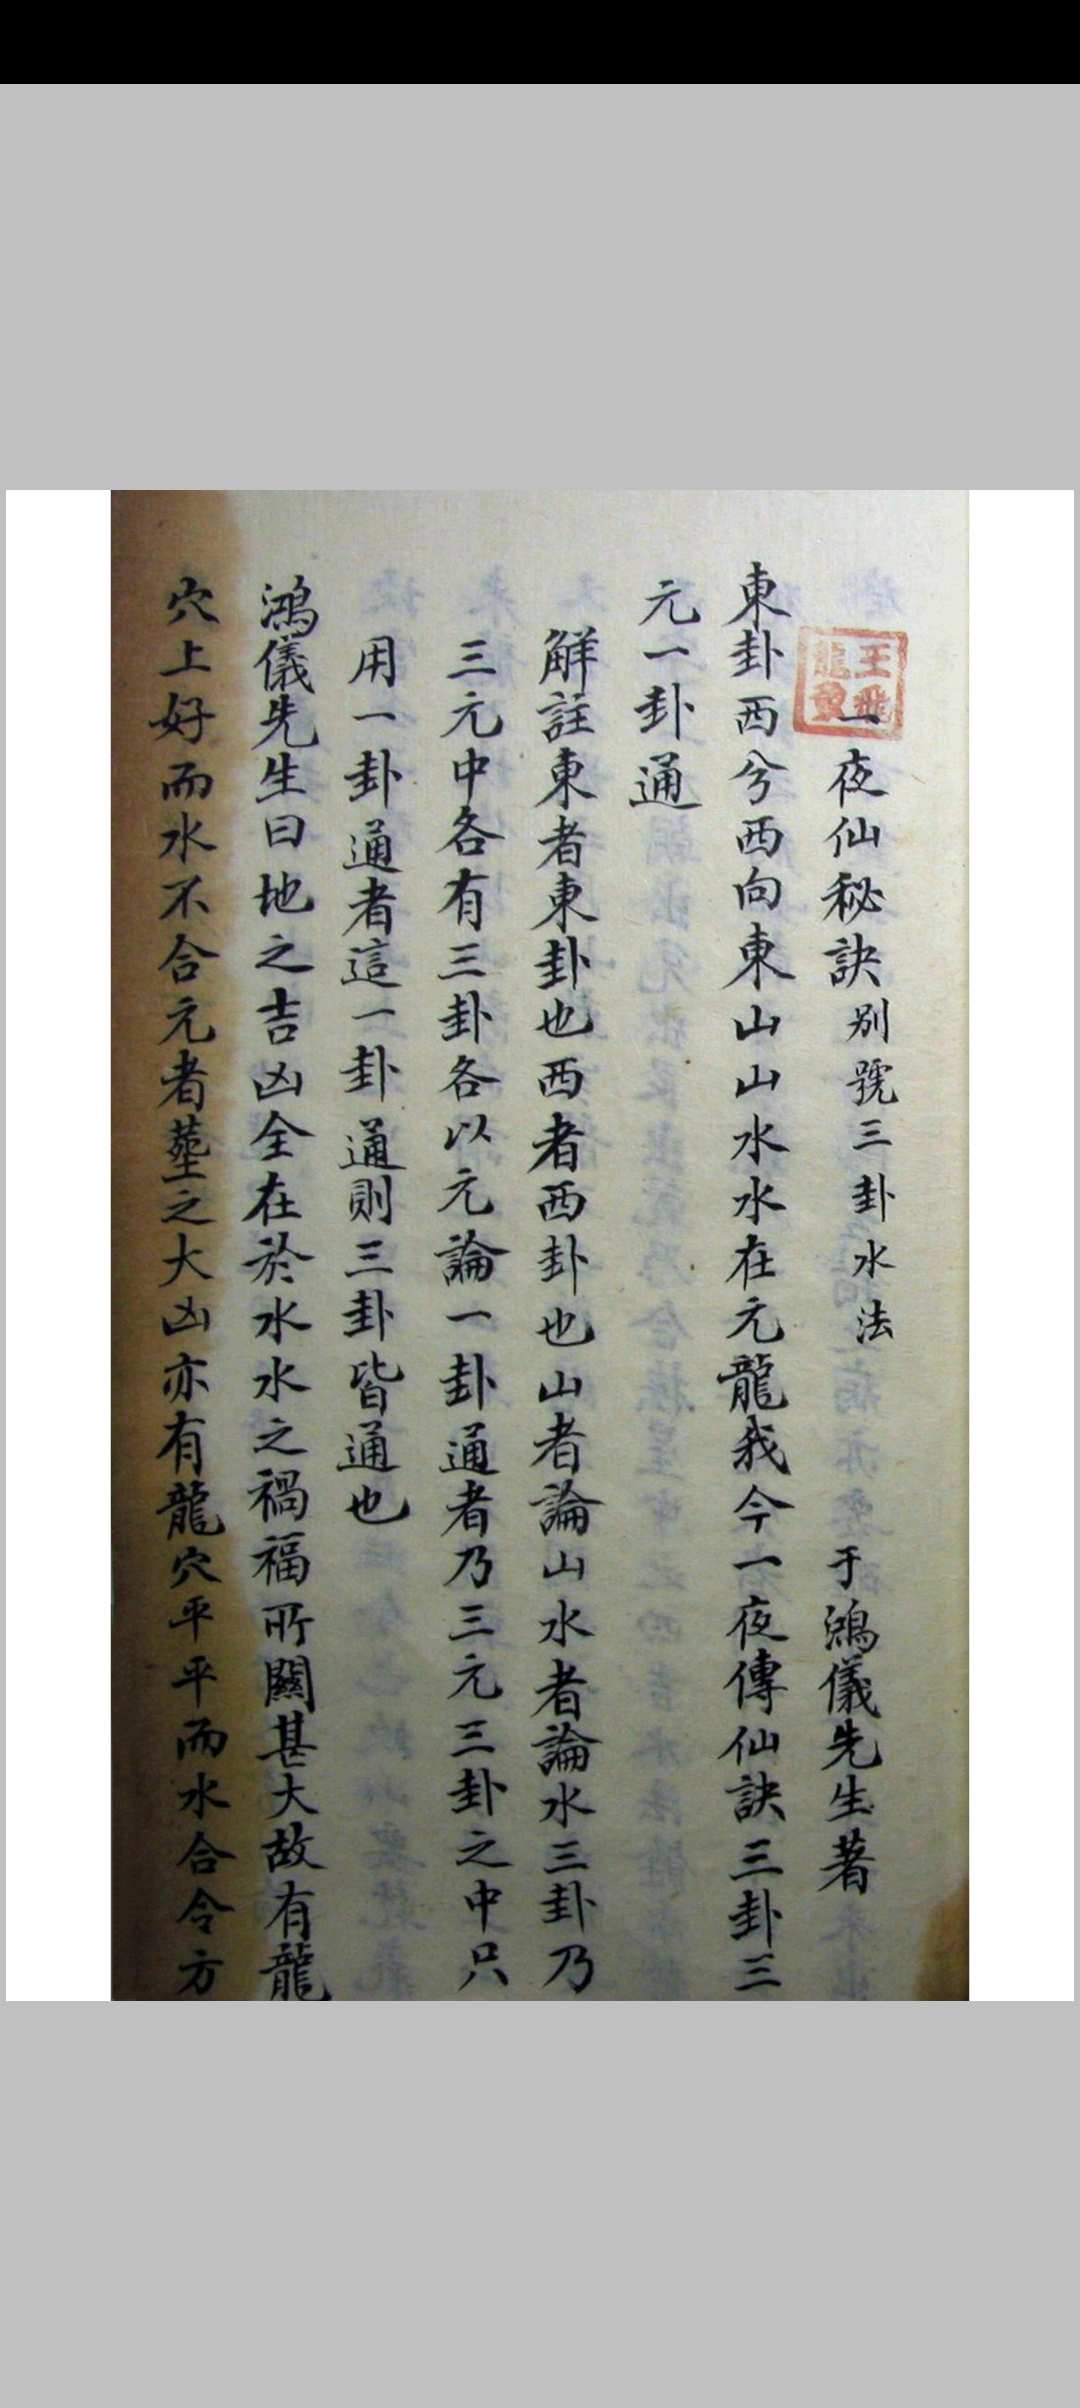 一夜仙秘訣別號三卦水法 于鴻儀先生著
東卦西兮西向東山山水水在元龍我今一夜傳仙訣三卦三
元一卦通
解註東者東卦也西者西卦也山者論山水者論水三卦乃
三元中各有三卦各以元論一卦通者乃三元三卦之中只
用一卦通者這一卦通則三卦皆通也
鴻儀先生曰地之吉凶全在於水水之禍福所關甚大故有龍
穴上好而水不合元者塟之大凶亦有龍穴平平而水合令方
王飛龍